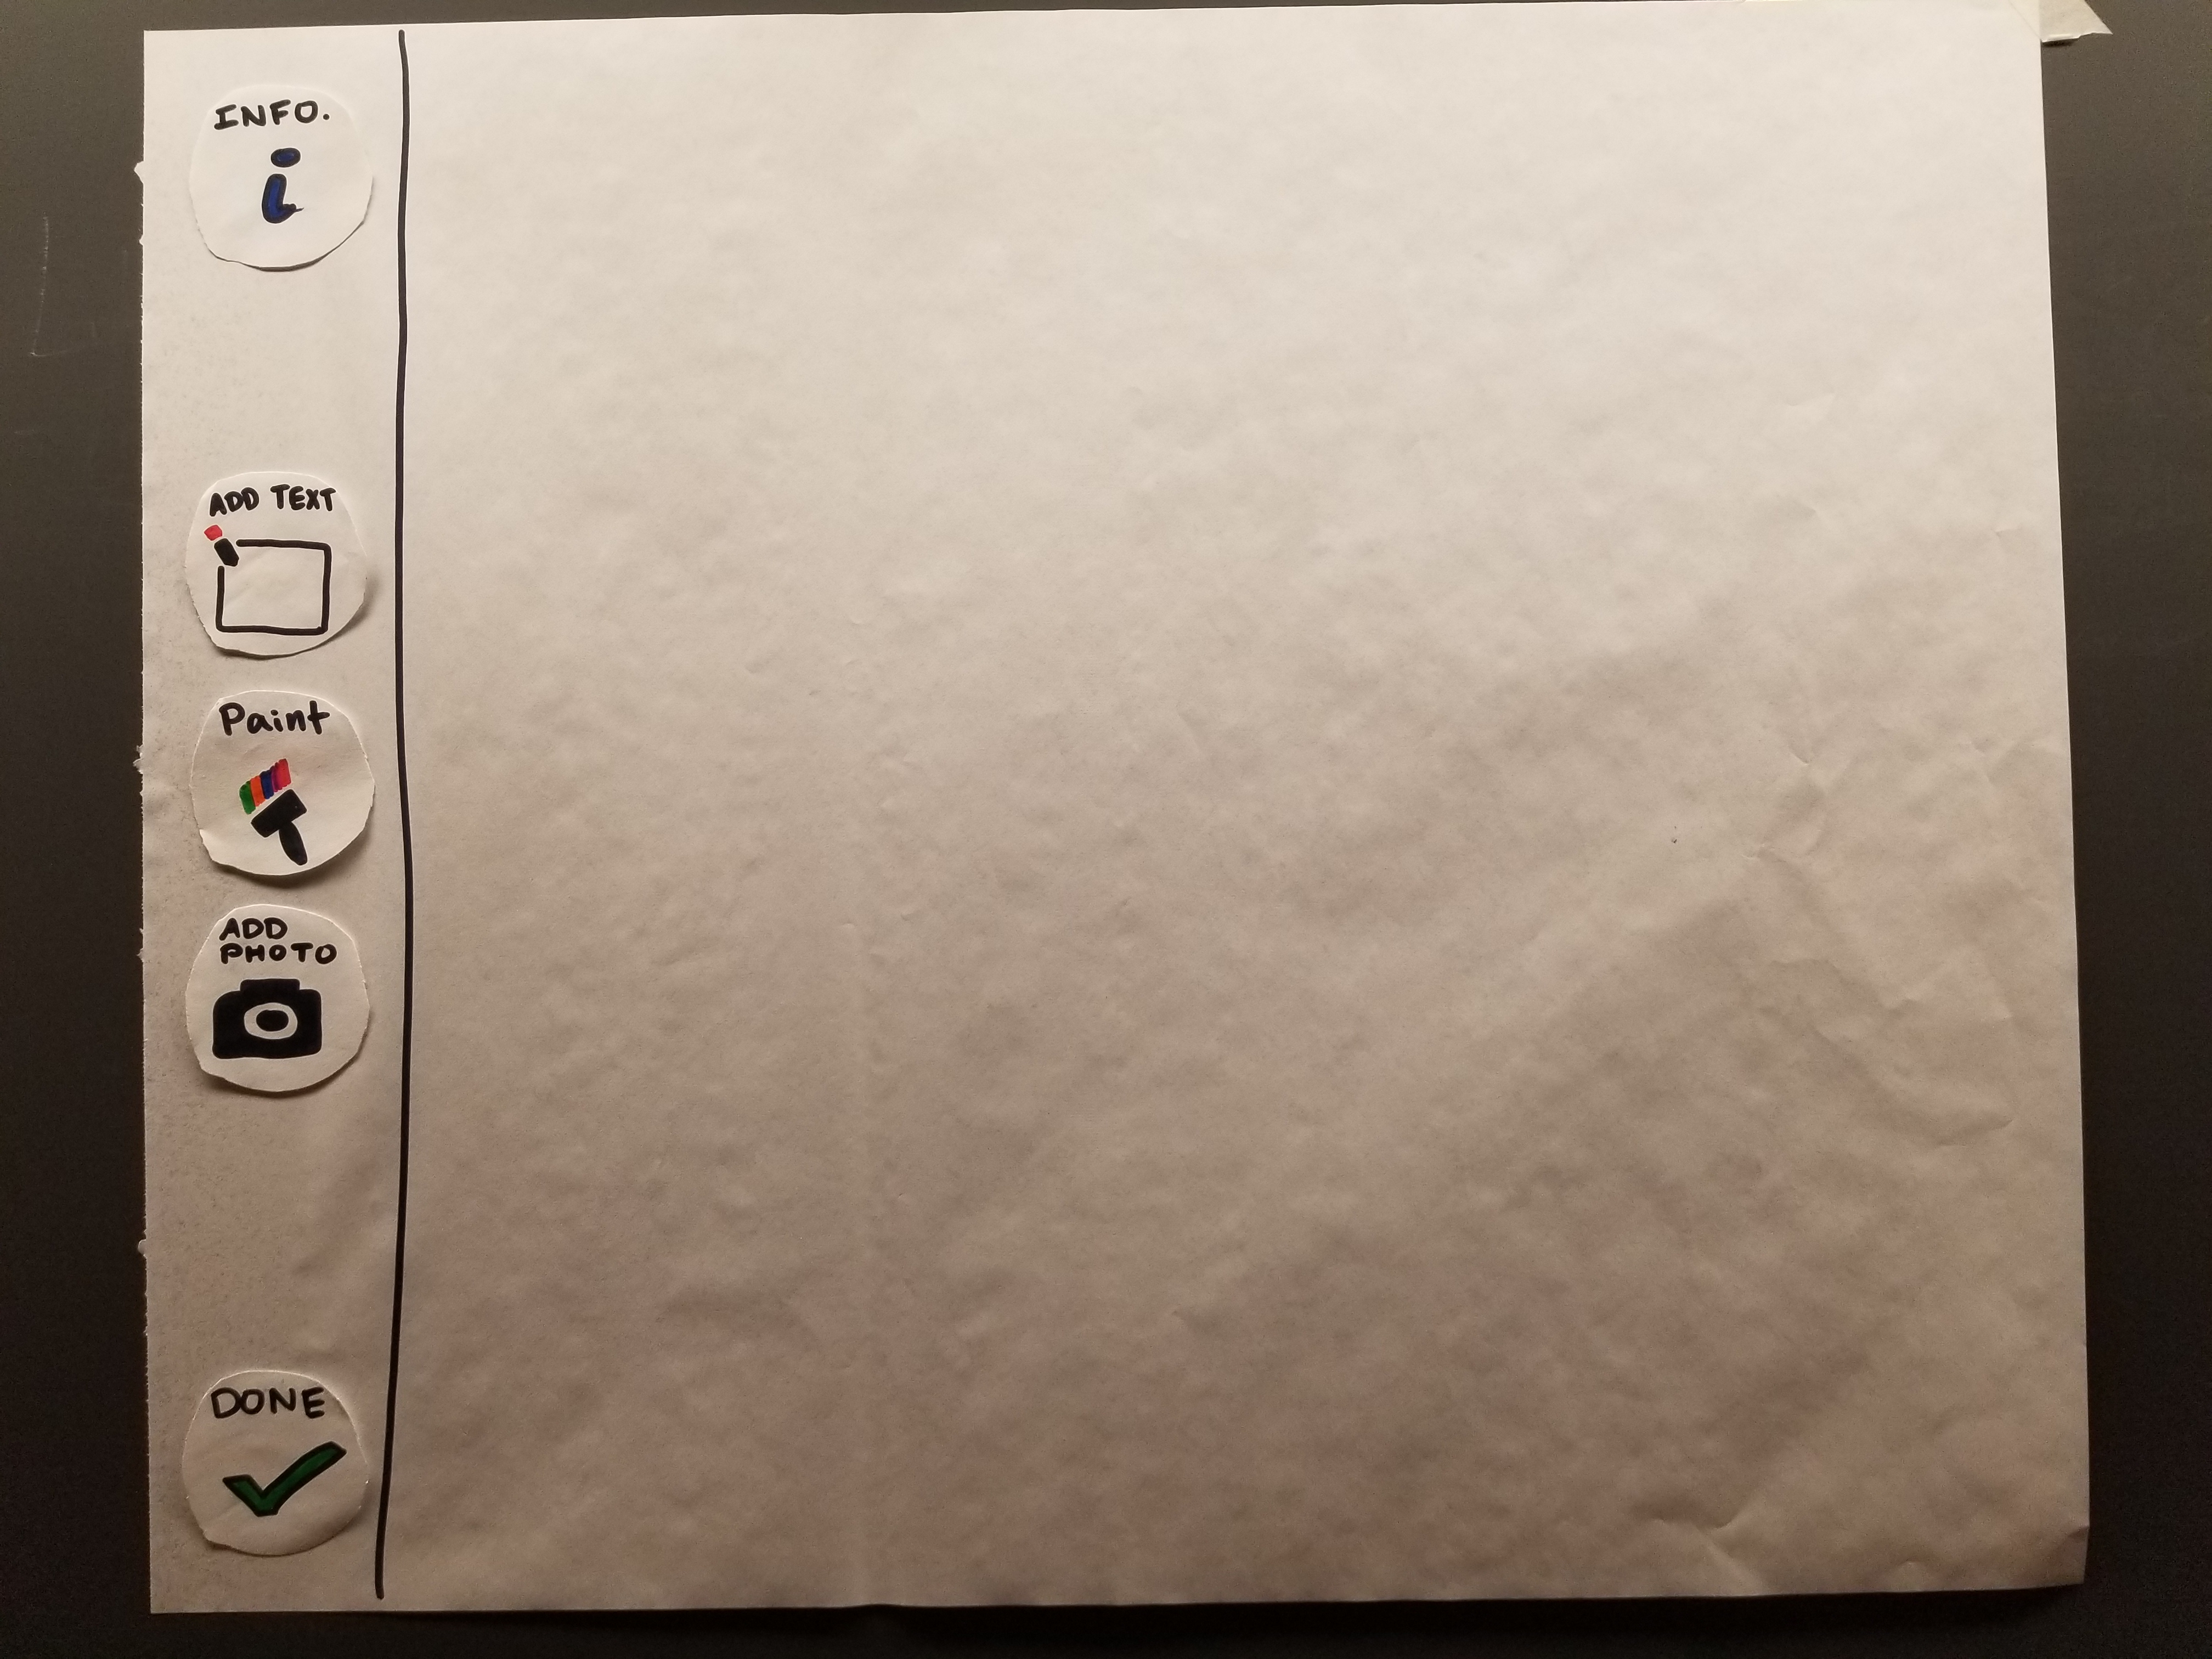 INFO.
i
ADD TEXT
Paint
ADD
PHOTO
DONE